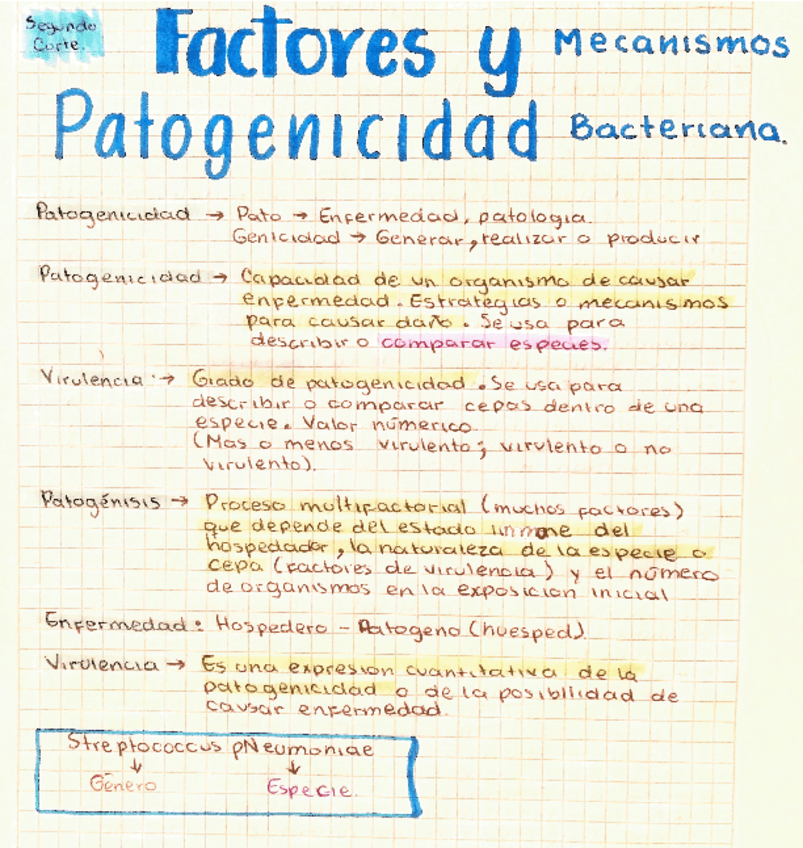 Segundo
Corte.
Factores y Mecanismos
Patogenicidad Bacteriana.
Patogenicidad → Pato → Enfermedad, patologia.
Genicidad → Generar, realizar o producir
Patogenicidad → Capacidad de un organismo de causar
enfermedad. Estrategias o mecanismos
para causar daño. Se usa para
describir o comparar especies.
Virulencia → Grado de patogenicidad. Se usa para
describir o comparar cepas dentro de una
especie. Valor númerico.
(Mas o menos virulento; virulento o no
virulento).
Patogénisis → Proceso multifactorial (muchos factores)
que depende del estado inmune del
hospedador, la naturaleza de la especie o
cepa (factores de virulencia) y el número
de organismos en la exposicion inicial
Enfermedad: Hospedero - Patogeno (huesped)
Virulencia → Es una expresion cuantitativa de la
patogenicidad o de la posibilidad de
causar enfermedad.
Streptococcus pNeumoniae
↓ ↓
Género Especie.